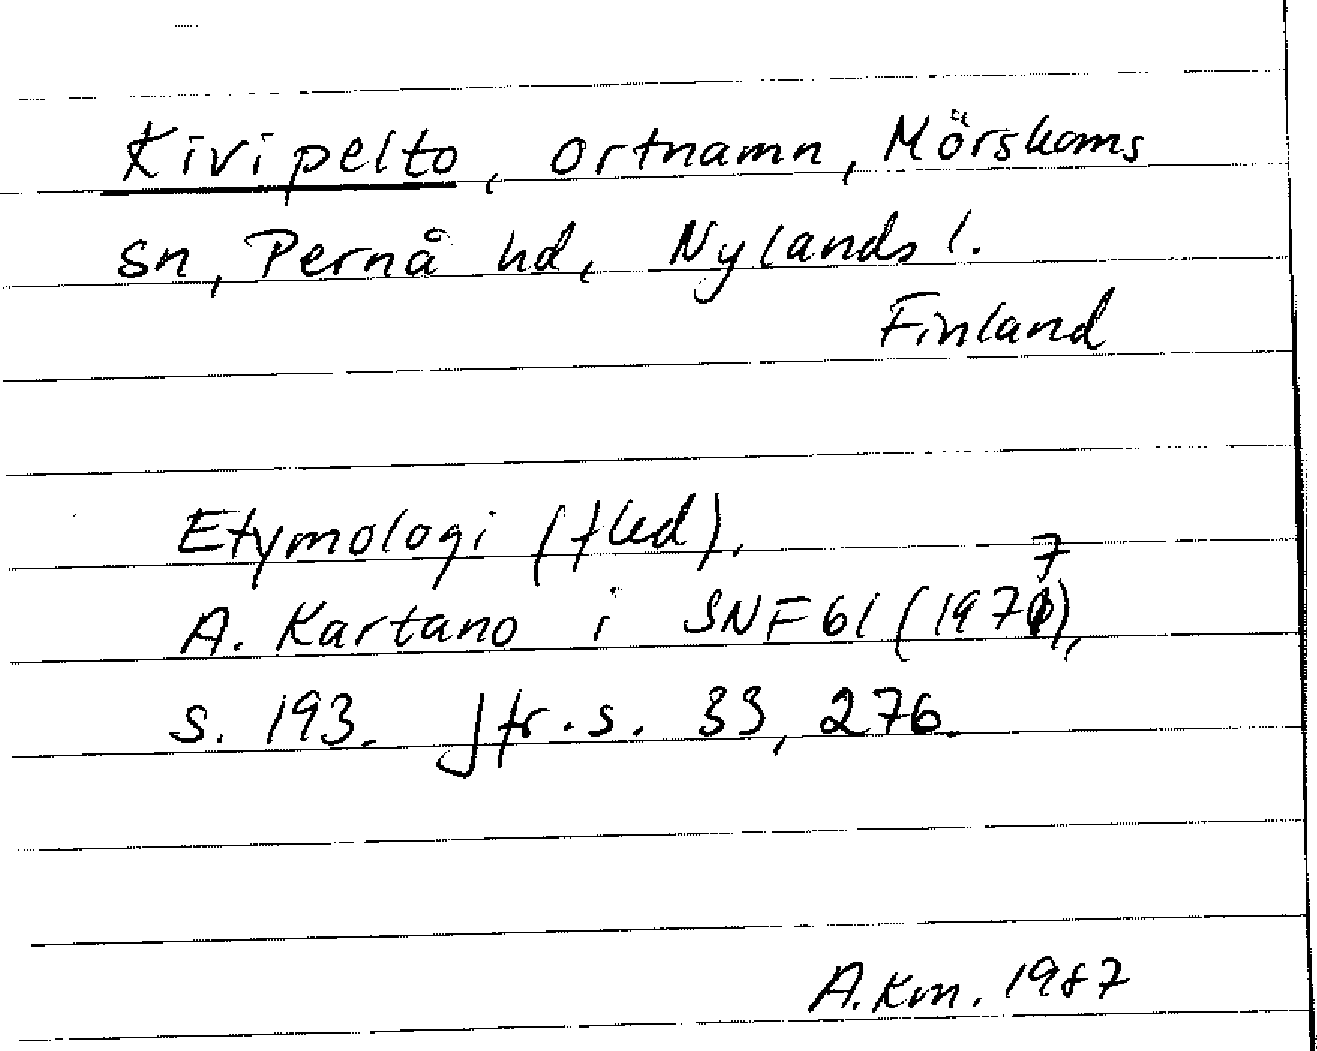 Kivipelto, ortnamn, Mörskoms
sn, Pernå hd, Nylands l.
Finland
Etymologi (fled).
A. Kartano i SNF 61 (1977),
s. 193. Jfr. s. 33, 276.
A. Km. 1987